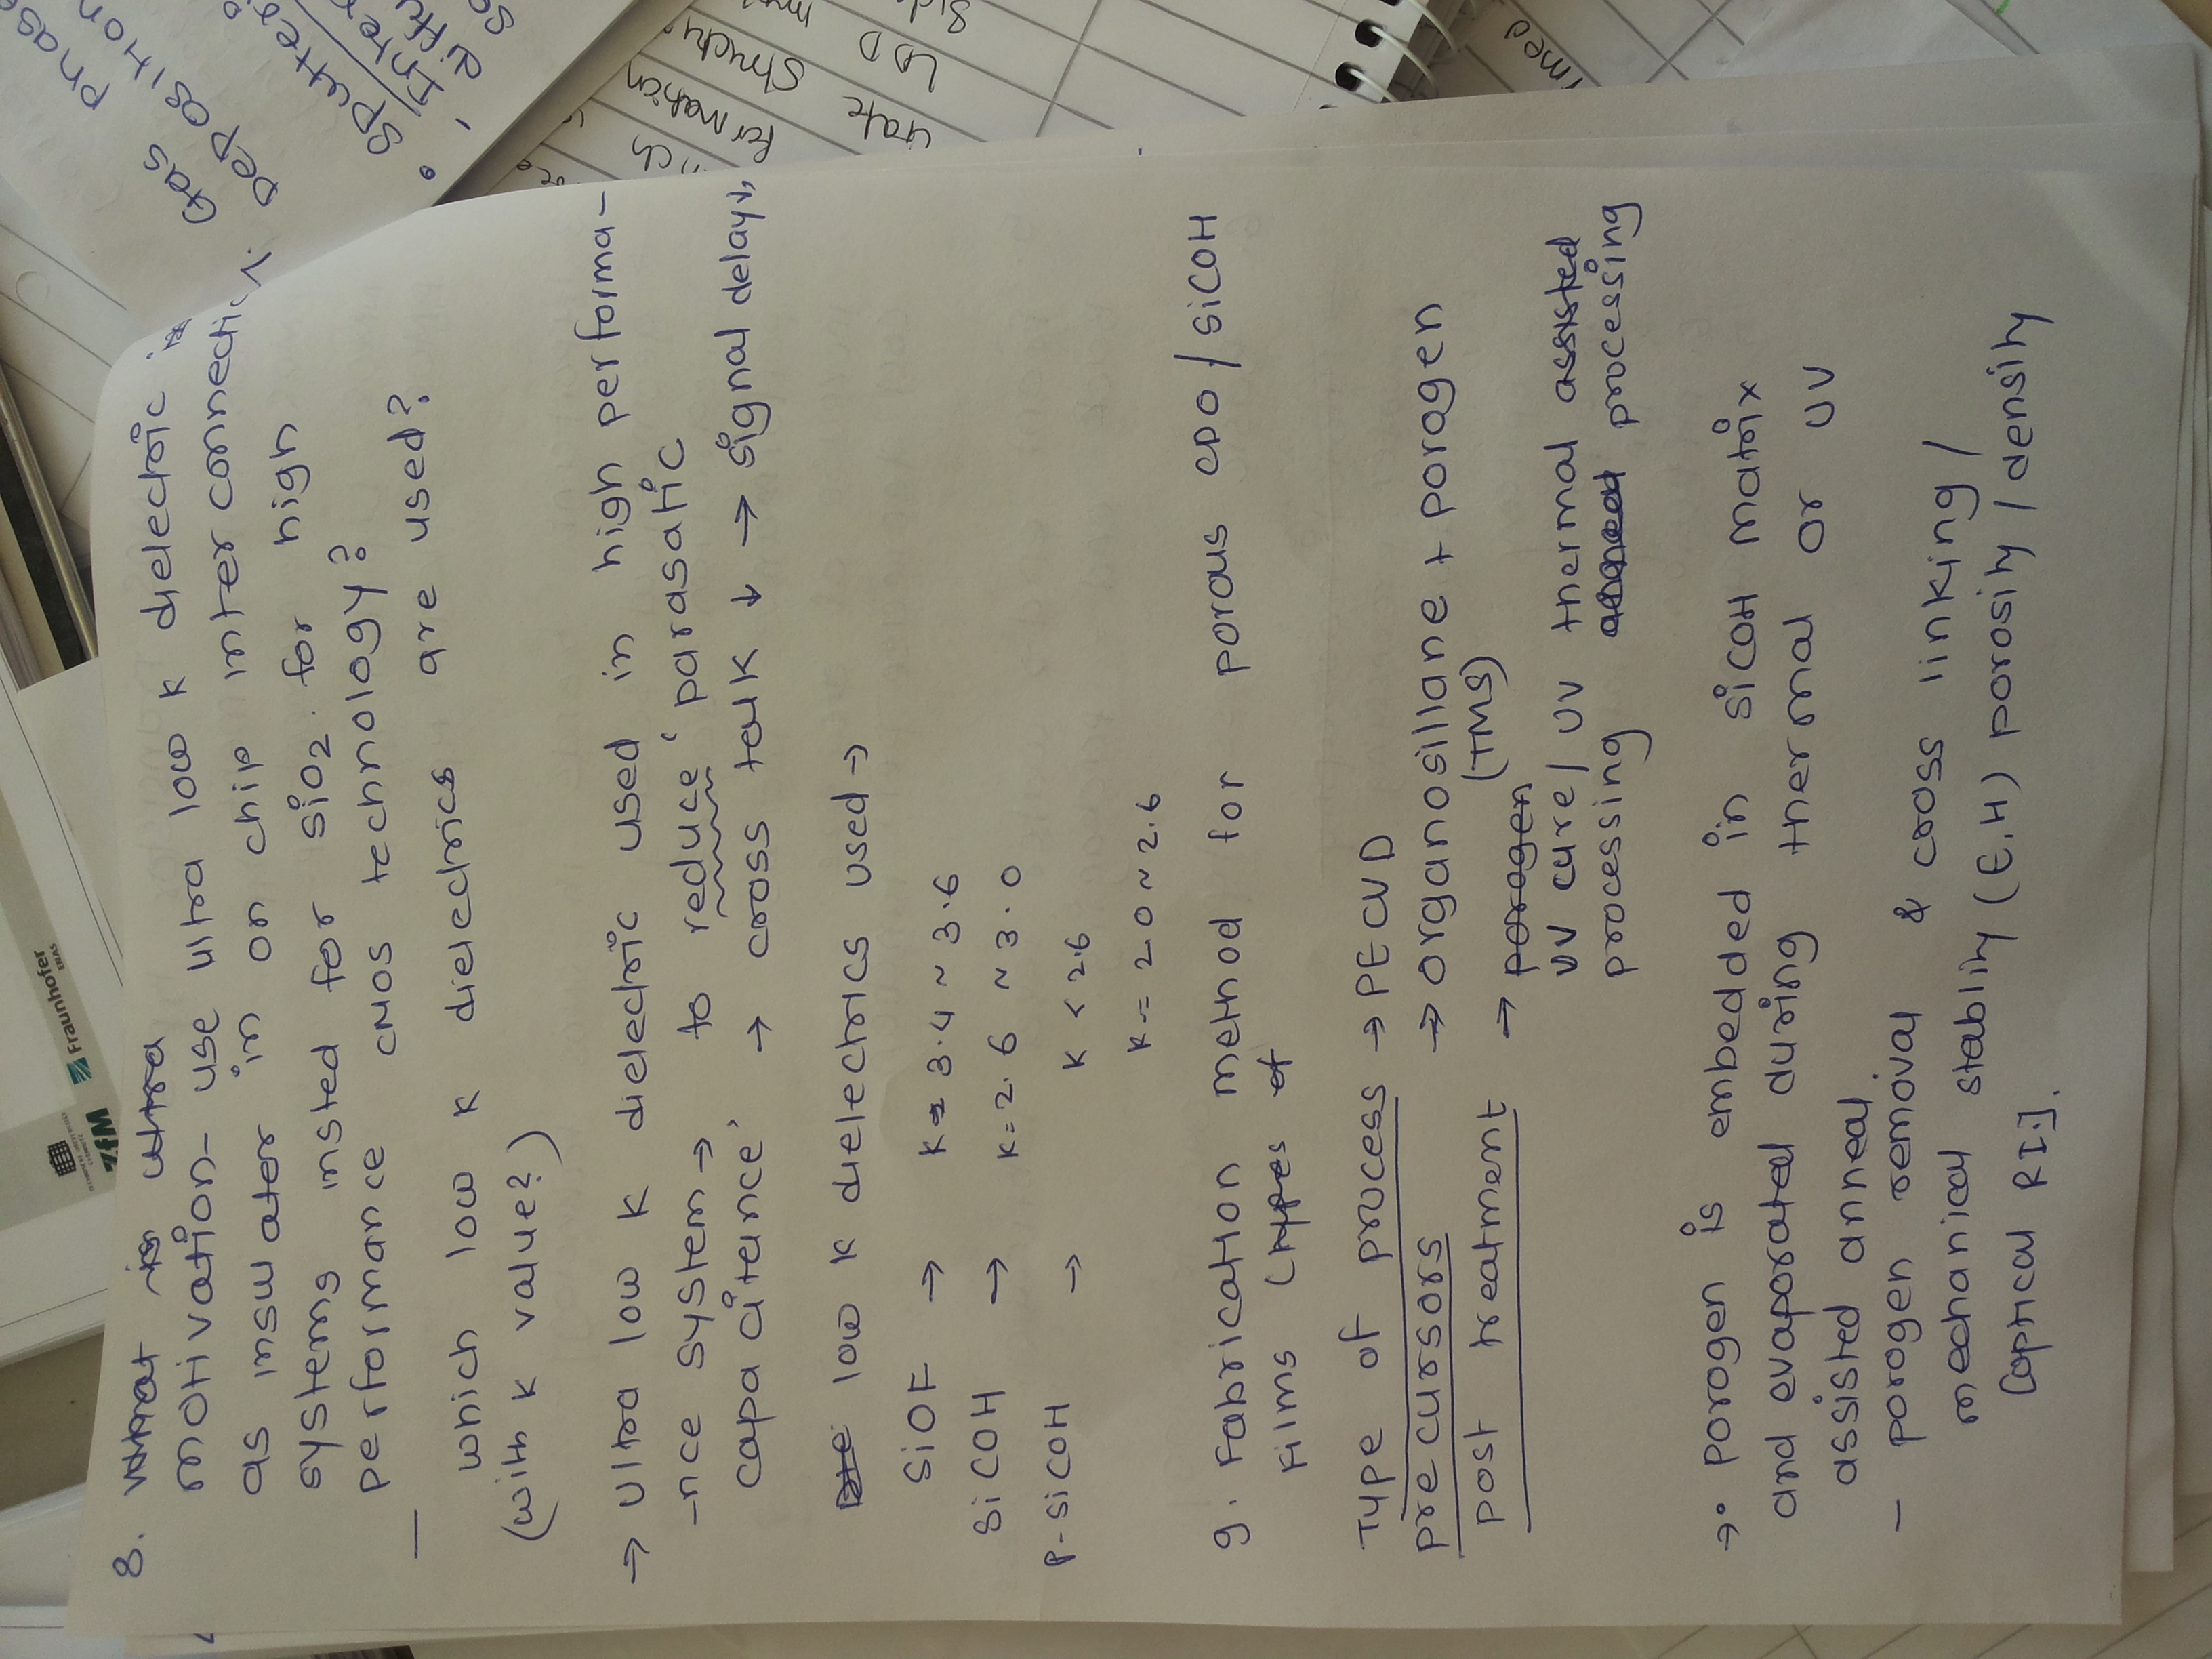 TECHNISCHE UNIVERSITÄT
CHEMNITZ
ZfM
Fraunhofer
ENAS
8. What is ultra
motivation- use ultra low K dielectric is
as insulater in on chip inter connectic
systems insted for SiO2. for high
performance CMOS technology?
— which low K dielectrics are used?
(with K value?)
→ Ultra low K dielectric used in high performa-
-nce system → to reduce 'parasatic
capacitance' → cross talk ↓ → signal delay↓,
low K dielectrics used →
SiOF → K= 3.4 ~ 3.6
SiCOH → K= 2.6 ~ 3.0
P-SiCOH → K < 2.6
K = 2.0 ~ 2.6
9. Fabrication method for porous CDO / SiCOH
Films (types of
Type of process → PECVD
precursors → organosillane + porogen
(TMS)
post treatment → porogen
UV cure / UV thermal assisted
processing anneal processing
→• porogen is embedded in SiCOH Matrix
and evaporated during thermal or UV
assisted anneal.
— porogen removal & cross linking /
mechanical stablity (E,H) porosity / density
[optical RI.].
7. Gas phase
Deposition
• Sputteri
- Inter
diffu
Gate Formation
LDD Structu